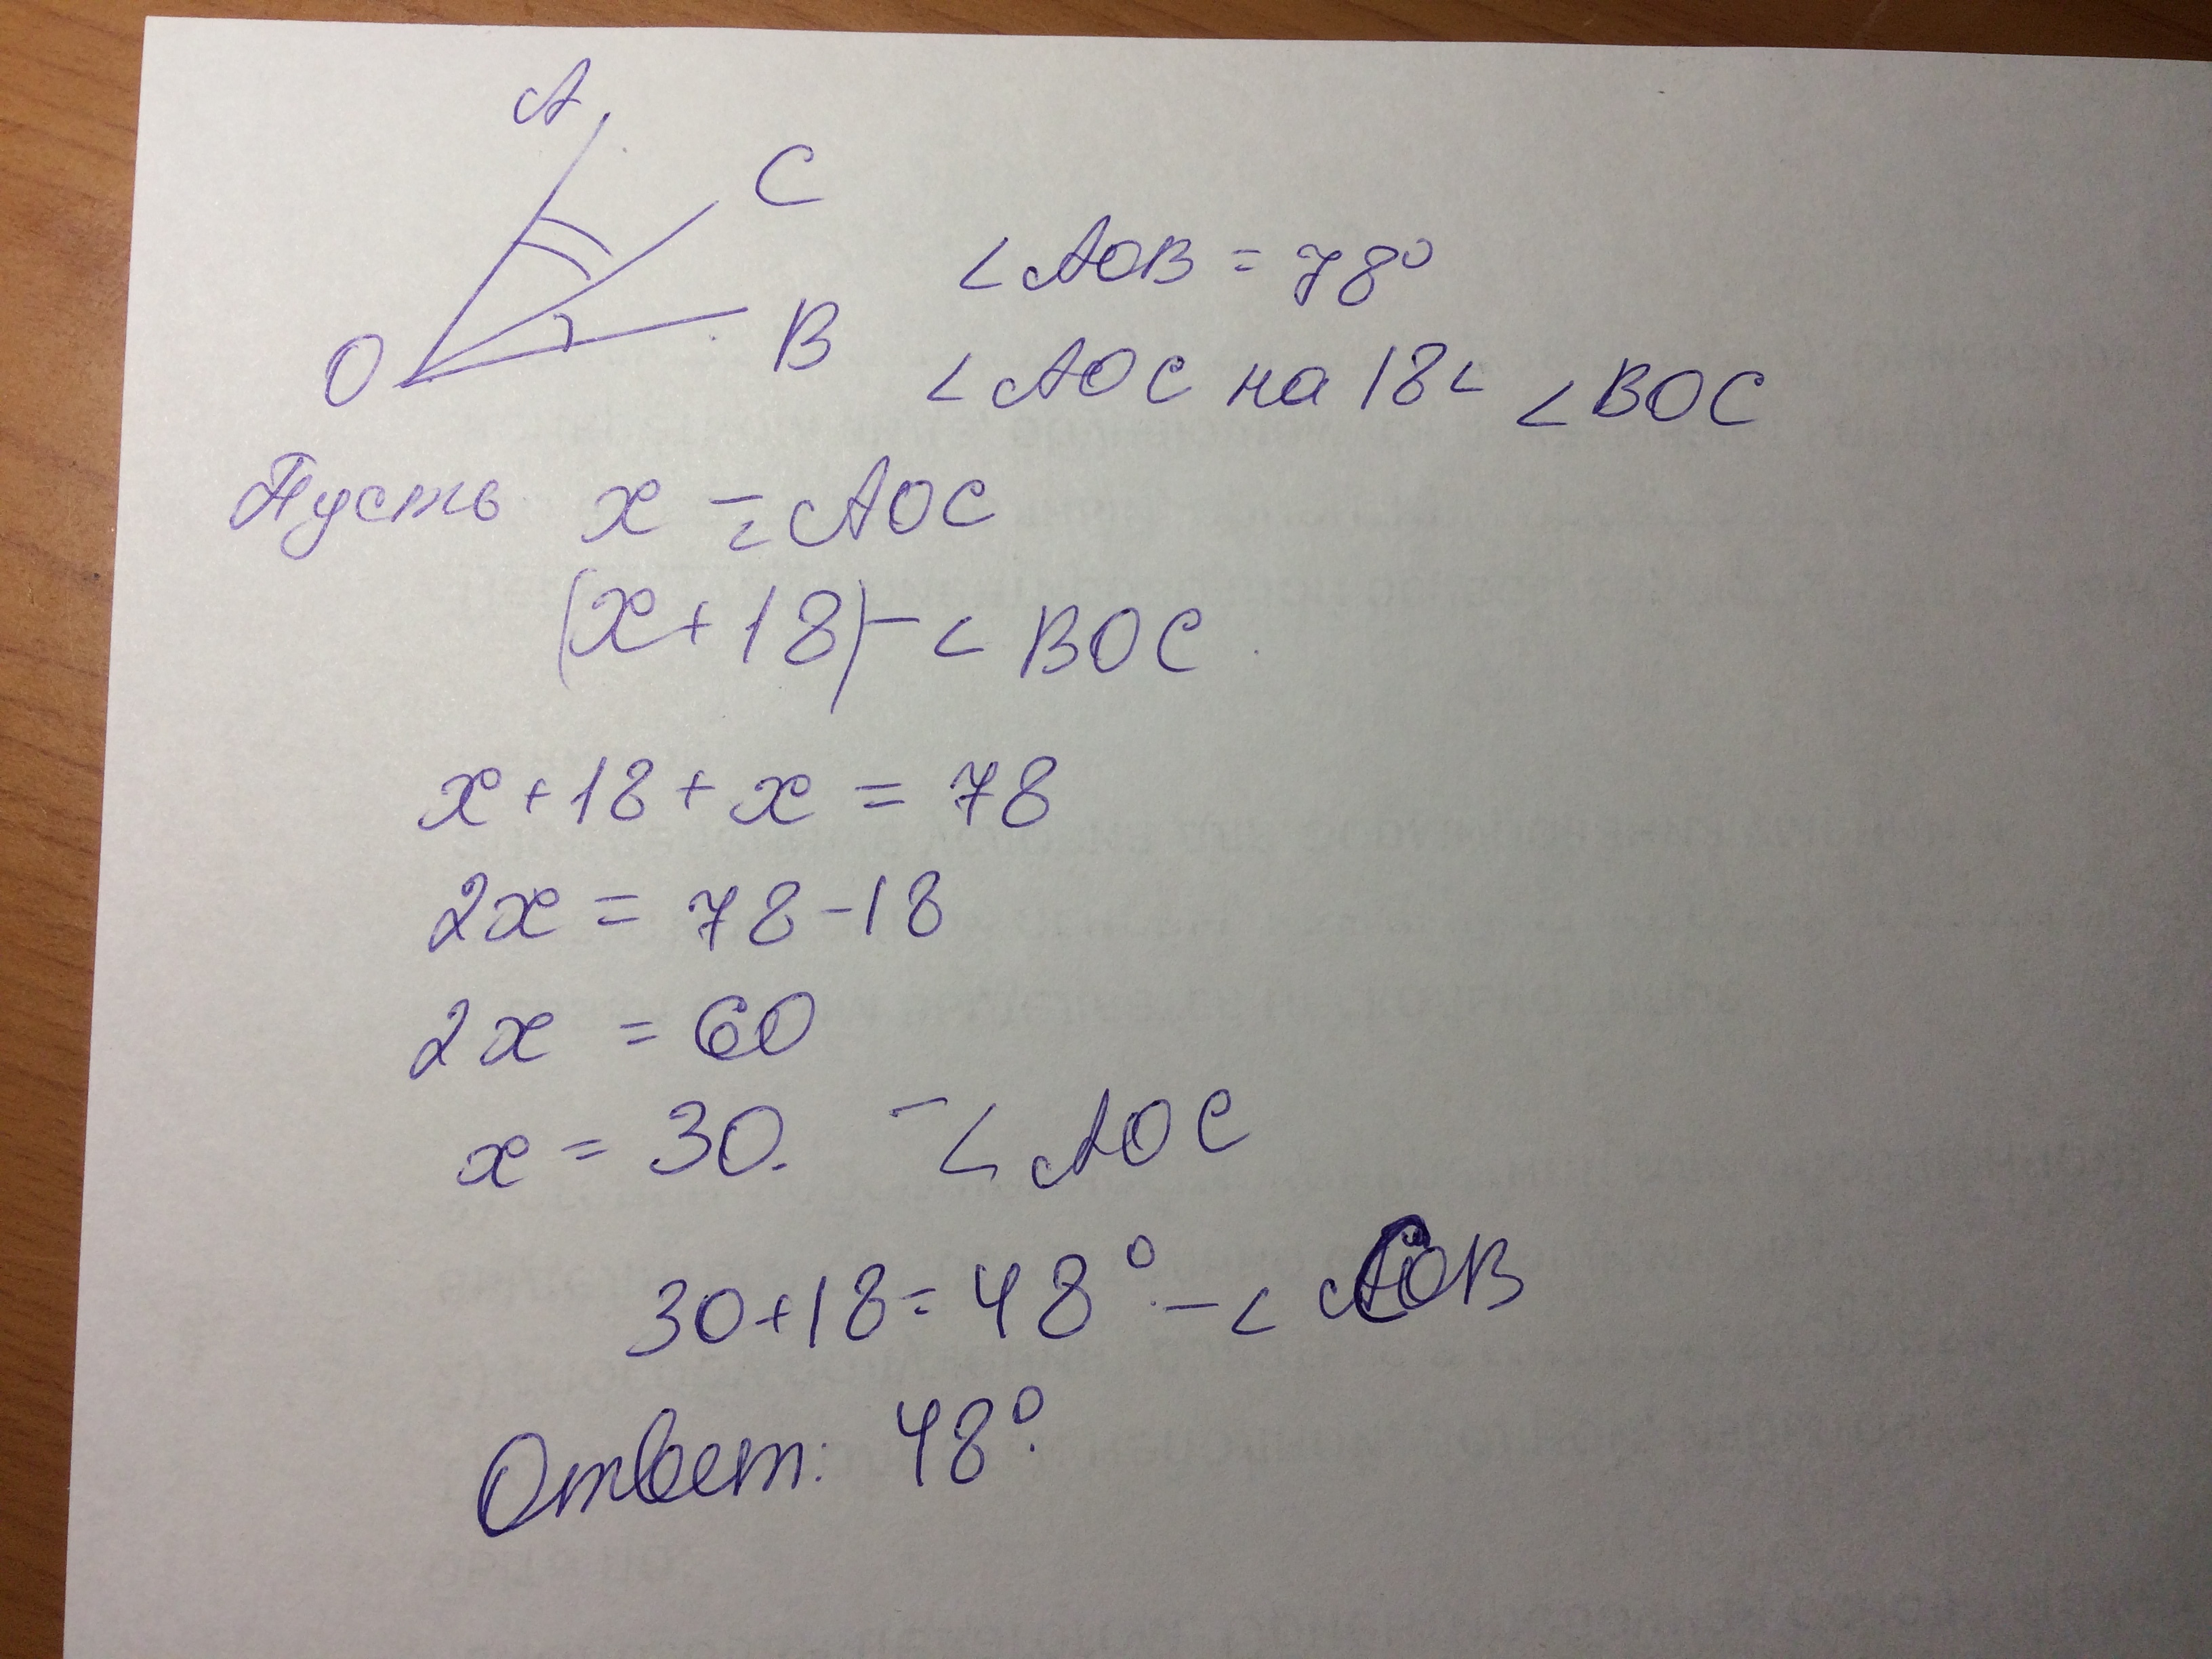 A
C
O
B
∠AOB = 78°
∠AOC на 18< ∠BOC
Пусть x – ∠AOC
(x+18) – ∠BOC
x+18+x = 78
2x = 78-18
2x = 60
x = 30. – ∠AOC
30+18=48° – ∠COB
Ответ: 48°.